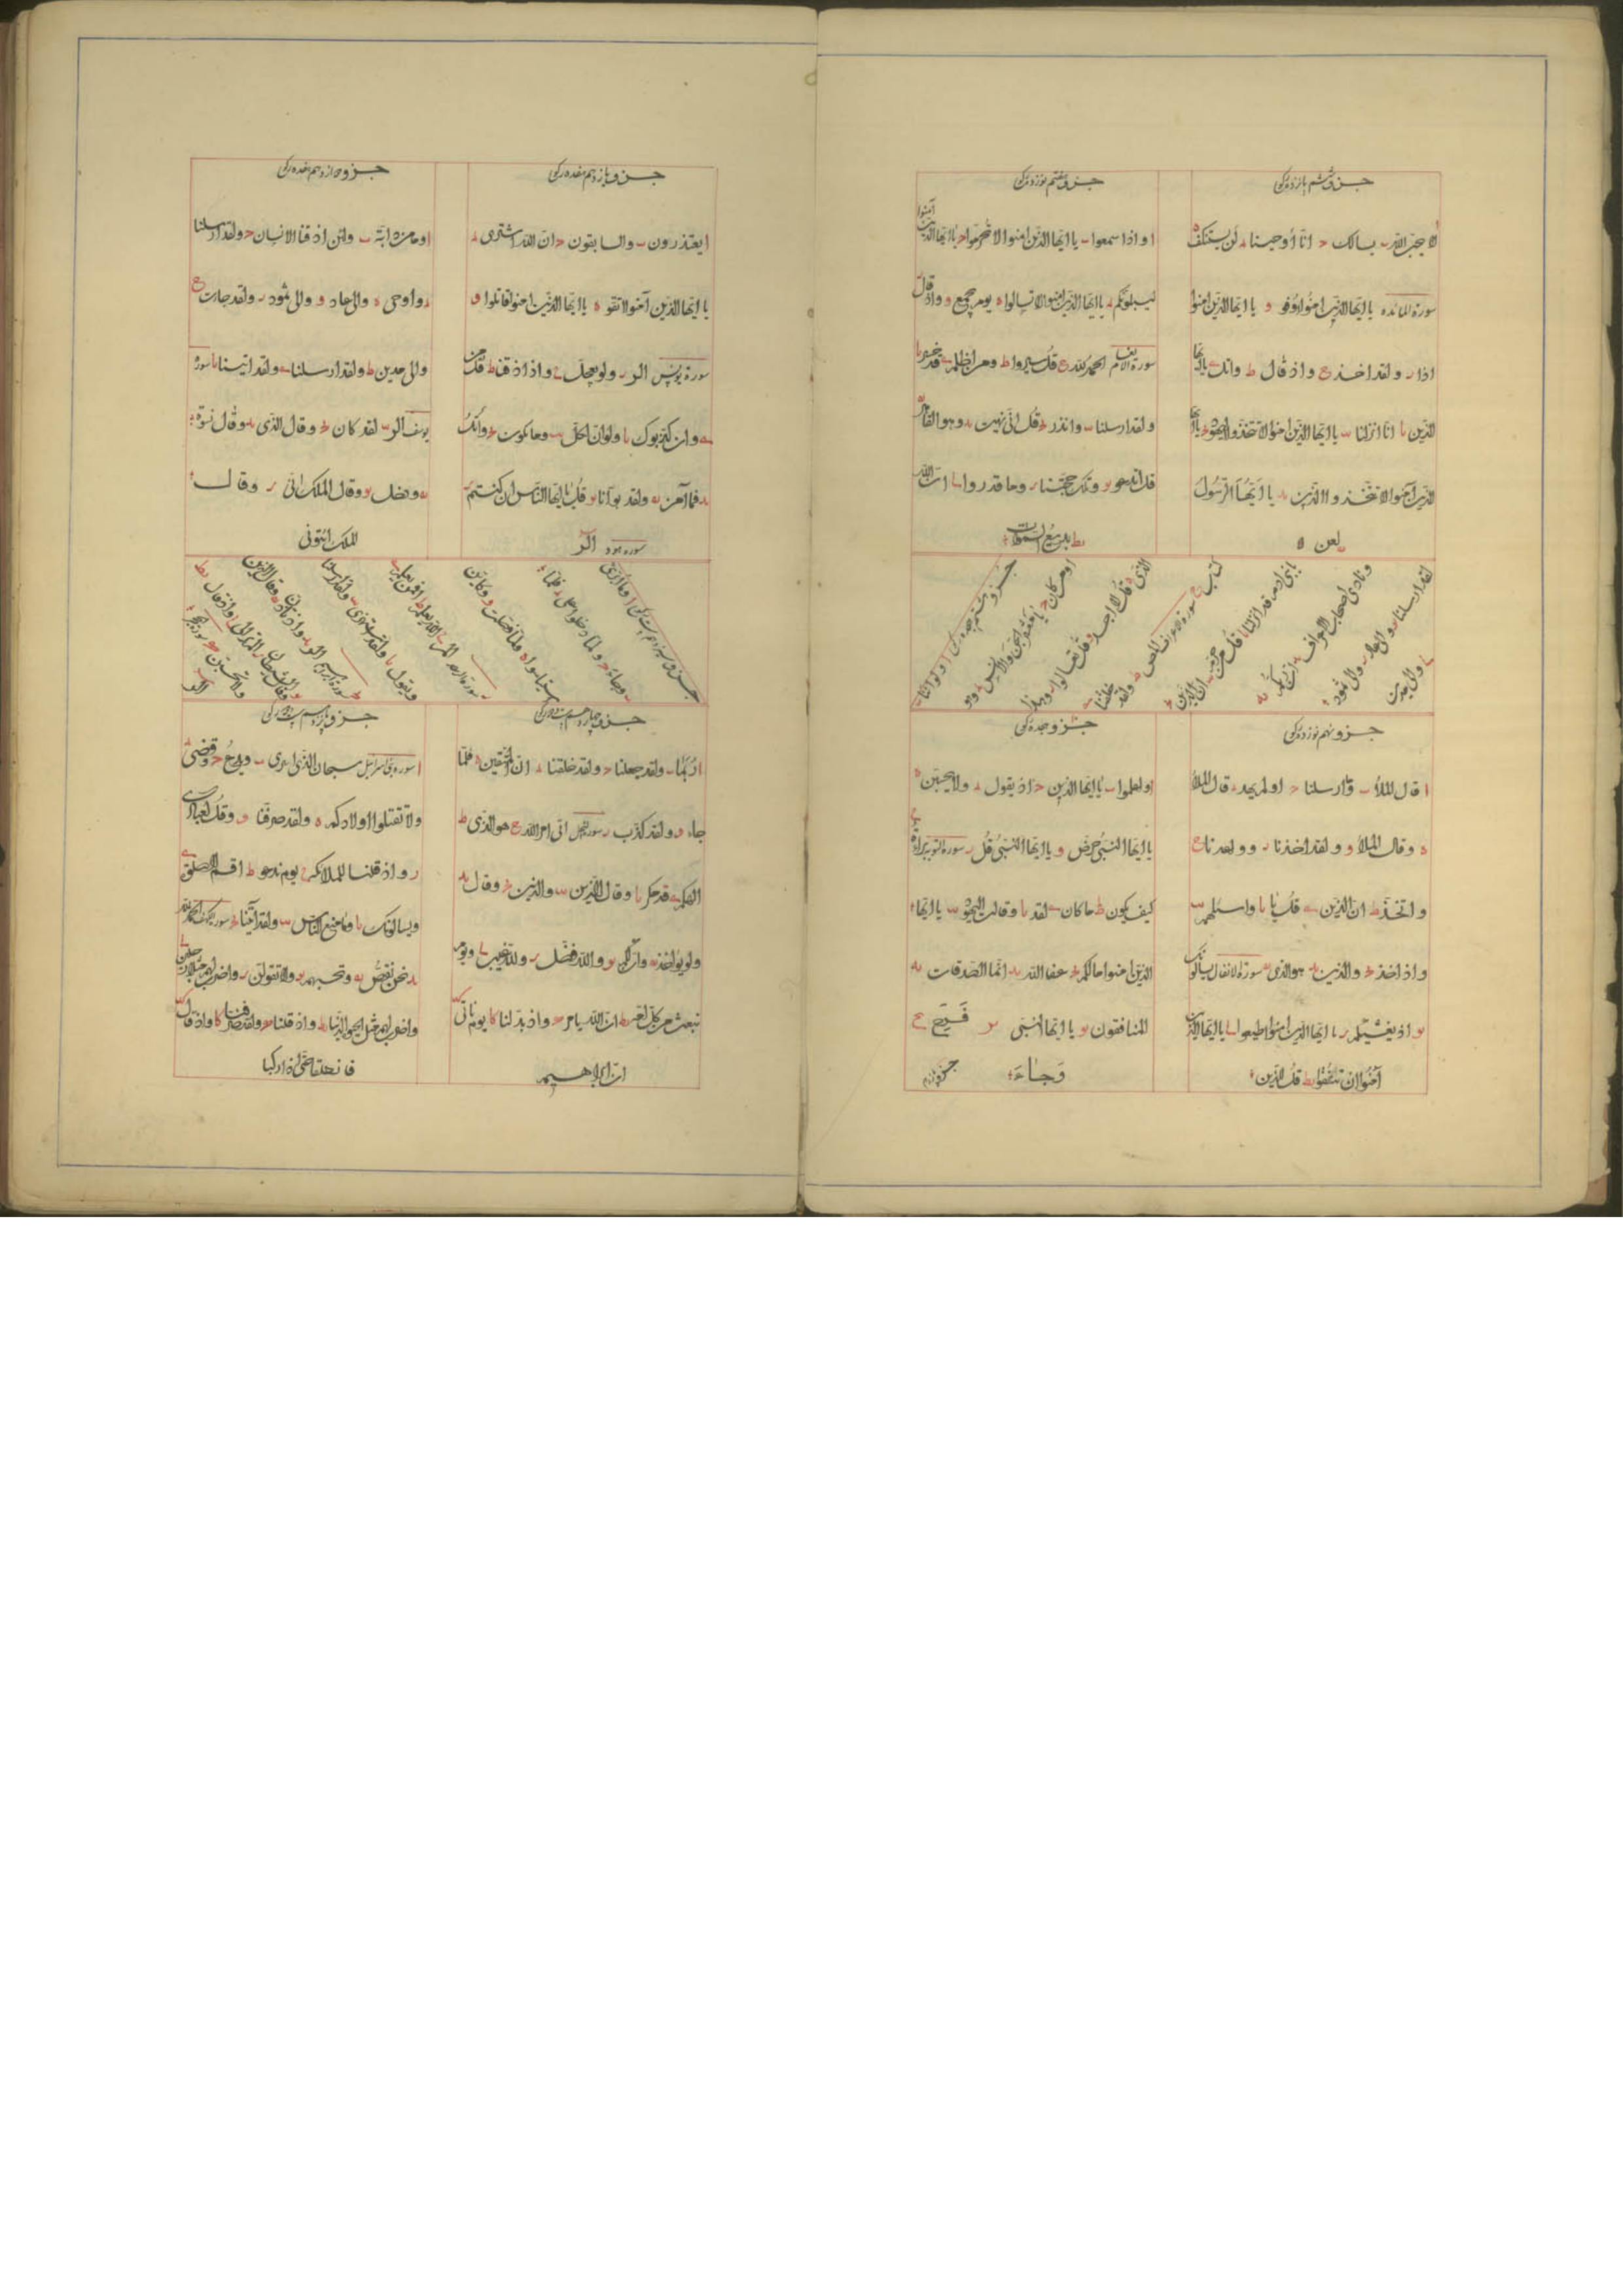 جزو ششم پانزده رکوع
لا یحب الله ب یسالک ج انا أوحینا د لن یستنکف ه
سورة المائده یا ایها الذین امنوا اوفو و یا ایها الذین امنوا
اذا ر ولقد اخذ ح واذ قال ط واتل ی یا ایها
الذین یا انا انزلنا یب یا ایها الذین امنوا لا تتخذوا الیهود یج یا ایها
الذین آمنوا لا تتخذوا الذین ید یا ایها الرسول
یه لعن ه
جزو هفتم نوزده رکوع
ا و اذا سمعوا ب یا ایها الذین امنوا لا تحرموا ج یا ایها الذین آمنوا
لیبلونکم د یا ایها الذین امنوا لا تسالوا ه یوم یجمع و واذ قال
سورة الانعام الحمد لله ح قل سیروا ط ومن اظلم ی قد خسر یا
ولقد ارسلنا یب وانذر یج قل انی نهیت ید وهو القاهر
قل اندعو یو وتلک حجتنا یر وما قدروا یح ان الله
یط بدیع السموات
جزو هشتم هجده رکوع ا ولو اننا ب
اومن کان ج یا معشر الجن والانس د وهو
الذی ه قل لا اجد و قل تعالوا ر وهذا
کتاب ح سورة الاعراف المص ط ولقد خلقنا ی
یا بنی ادم قد انزلنا یا قل من حرم یب ان الذین یج
ونادی اصحاب الاعراف ید ان ربکم یه
لقد ارسلنا یو والی عاد یر والی ثمود
یح والی مدین
جزو نهم نوزده رکوع
ا قال الملأ ب وما ارسلنا ج اولم یهد د قال الملأ
ه وقال الملأ و ولقد اخذنا ر ووعدنا ح
واتخذ ط ان الذین ی قل یا یا واسئلهم یب
واذ اخذ یج والذین ید هو الذی یه سورة الانفال یسألونک
یو اذ یغشیکم یر یا ایها الذین امنوا اطیعوا یح یا ایها الذین
آمنوا ان تتقوا یط قل للذین
جزو هجده رکوع
ا واعلموا ب یا ایها الذین ج اذ یقول د ولا یحسبن ه
یا ایها النبی حرض و یا ایها النبی قل ر سورة التوبه براءة ح
کیف یکون ط ما کان ی لقد یا وقالت الیهود یب یا ایها
الذین امنوا ما لکم یج عفا الله ید انما الصدقات یه
المنافقون یو یا ایها النبی یر فرح یح
وجاء
جزو یازدهم هفده رکوع
ا یعتذرون ب والسابقون ج ان الله اشتری د
یا ایها الذین آمنوا اتقو ه یا ایها الذین امنوا قاتلوا و
سورة یونس الر ر ولو یعجل ح واذا اذقنا ط قل من
ی وان کذبوک یا ولو ان لکل یب وما تکون یج واتل
ید فما آمن یه ولقد بوأنا یو قل یا ایها الناس ان کنتم یر
سوره هود الر
جزو دوازدهم هفده رکوع
ا وما من دابة ب ولئن اذقنا الانسان ج ولقد ارسلنا
د واوحی ه والی عاد و والی ثمود ر ولقد جاءت ح
والی مدین ط ولقد ارسلنا ی ولقد اتینا یا سورة
یوسف الر یب لقد کان یج وقال الذی ید وقال نسوة
یه ودخل یو وقال الملک انی یر وقال
الملک ائتونی
جزو سیزدهم رکوع ا وما ابرئ
ب وجاء ج ولما دخلوا علی د فلما
استیأسوا ه ولما فصلت و وکاین
ر سورة الرعد المر ح الله یعلم ط افمن یعلم ی
ویقول یا ولقد استهزئ یب ولقد ارسلنا
یج سورة ابرهیم الر ید واذ تاذن یه وقال الذین
یو وقال الشیطان یر الم تر الی یح واذ قال یط
ولا تحسبن سورة الحجر
الر
جزو چهاردهم بیست دو رکوع
ا ربما ب ولقد جعلنا ج ولقد خلقنا د ان المتقین ه فلما
جاء و ولقد کذب ر سورة النحل اتی امر الله ح هو الذی ط
الهکم ی قد مکر یا وقال الذین یب والذین یج وقال ید
ولو یؤاخذ یه وان لکم یو والله فضل یر ولله غیب یح ویوم
نبعث من کل یط ان الله یامر ک واذ بدلنا کا یوم تأتی کب
ان ابراهیم
جزو پانزدهم رکوع
ا سورة بنی اسرائیل سبحان الذی اسری ب ویدع ج وقضی د
ولا تقتلوا اولادکم ه ولقد صرفنا و وقل لعبادی
ر واذ قلنا للملائکة ح یوم ندعو ط اقم الصلوة ی
ویسالونک یا وما منع الناس یب ولقد آتینا یج سوره کهف الحمد لله
ید نحن نقص یه وتحسبهم یو ولا تقولن یر واضرب لهم مثلا رجلین یح
واضرب لهم مثل الحیوة الدنیا یط واذ قلنا ک ولقد صرفنا کا واذ قال کب
فانطلقا حتی اذا رکبا